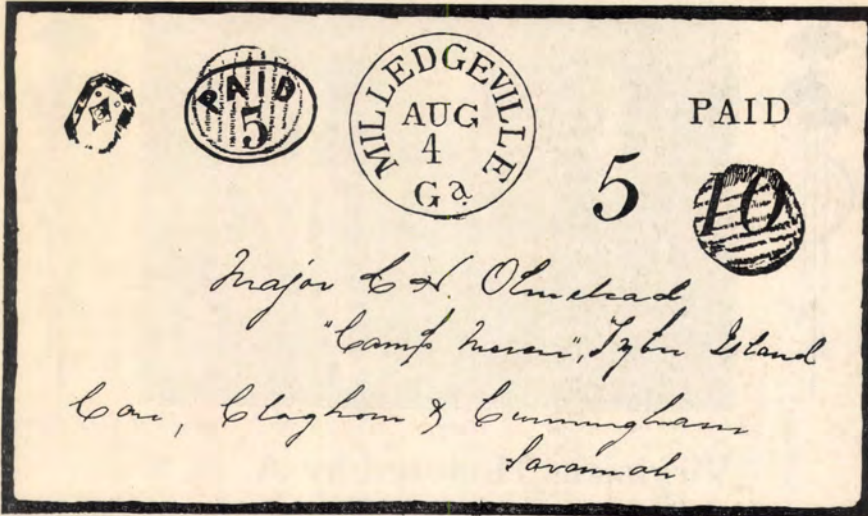 PAID
5
MILLEDGEVILLE
AUG
4
Ga
PAID
5
10
Major C H. Olmstead
"Camp", Tybee Island
Care, Claghorn & Cunningham
Savannah